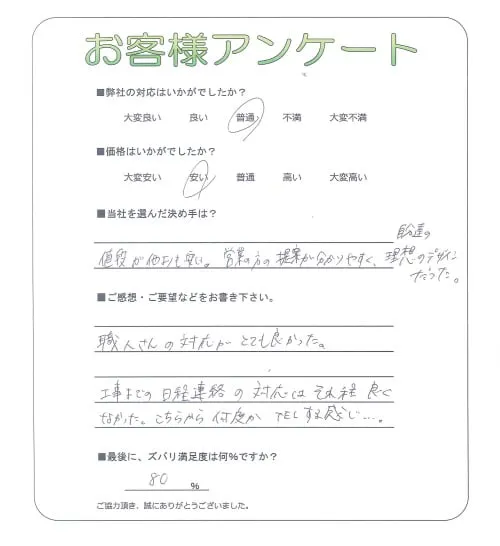 お客様アンケート
■弊社の対応はいかがでしたか？
大変良い 良い 普通 不満 大変不満
■価格はいかがでしたか？
大変安い 安い 普通 高い 大変高い
■当社を選んだ決め手は？
値段が他より安い。営業の方の提案が分かりやすく、
私達の
理想のデザイン
だった。
■ご感想・ご要望などをお書き下さい。
職人さんの対応がとても良かった。
工事までの日程連絡の対応はそれ程良く
なかった。こちらから何度かTELする感じ…。
■最後に、ズバリ満足度は何％ですか？
80 %
ご協力頂き、誠にありがとうございました。